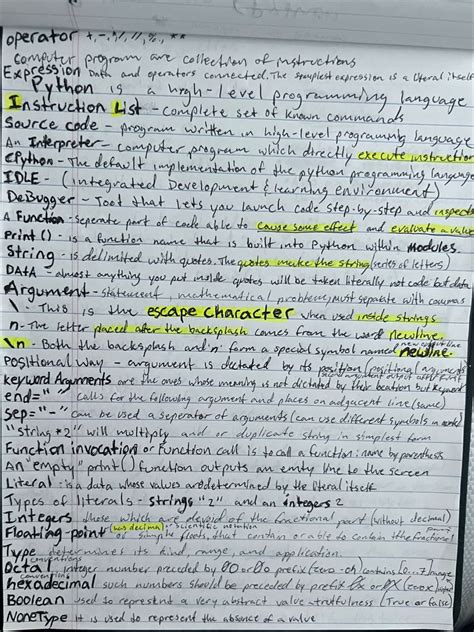 operator +, -, *, /, //, %, **
computer program are collection of instructions
Expression Data and operators connected. The simplest expression is a literal itself
Python is a high-level programming language
Instruction List - complete set of known commands
Source code - program written in high-level programming language
An Interpreter - computer program which directly execute instruction
CPython - The default implementation of the python programming language
IDLE - (integrated Development & learning environment)
DeBugger - Tool that lets you launch code step-by-step and inspect
A Function - seperate part of code able to cause some effect and evaluate a value
Print() - is a function name that is built into Python within modules.
String - is delimited with quotes. The quotes make the string (series of letters)
DATA - almost anything you put inside quotes will be taken literally not code but data
Argument - statement, mathematical problems, must separate with commas
\ - This is the escape character when used inside strings
n - The letter placed after the backsplash comes from the word newline.
\n - Both the backsplash and n form a special symbol named newline.
positional way - argument is dictated by its position (positional arguments)
keyword Arguments are the ones whose meaning is not dictated by their location but keyword
end=" " calls for the following argument and places on adjacent line (same)
sep="-" can be used a seperator of arguments (can use different symbols in
"string * 2" will multiply and or duplicate string in simplest form
Function invocation or Function call is to call a function: name by parenthesis
An "empty" print() function outputs an emty line to the screen
Literal is a data whose values are determined by the literal itself
Types of literals - strings "2" and an integers 2
Integers those which are devoid of the fractional part (without decimal)
Floating-point has decimal, scientific notation floats, that contain or able to contain the fractional
Type determines its kind, range, and application.
conventions
Octal integer number preceded by 0O or 0o prefix (zero-oh) contains [0...7] range
conventions
hexadecimal such numbers should be preceded by prefix 0x or 0X (zoox)
Boolean used to represent a very abstract value = truthfulness (True or false)
NoneType it is used to represent the absence of a value